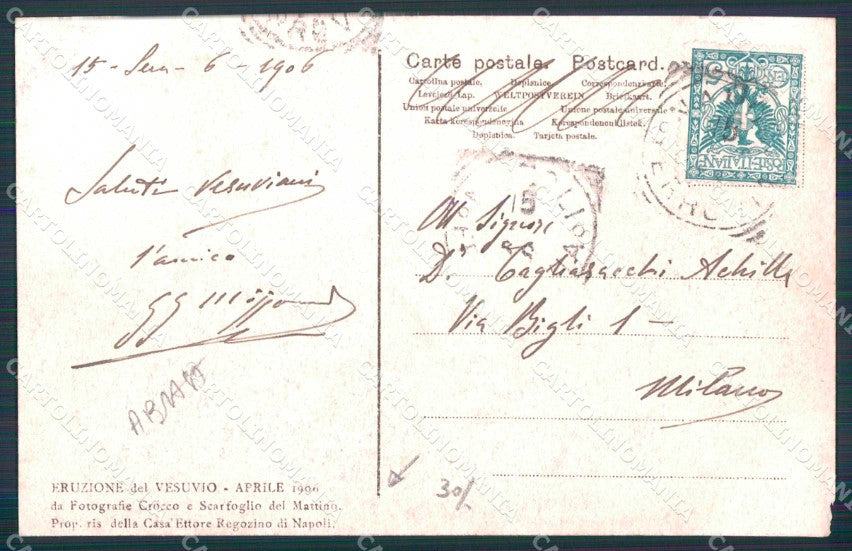 15 - Sera - 6 - 1906
Saluti Vesuviani
l'amico
ERUZIONE del VESUVIO - APRILE 1906
da Fotografie Crocco e Scarfoglio del Mattino.
Prop. ris della Casa Ettore Regozino di Napoli.
Carte postale. Postcard.
Cartolina postale. Dopisnice. Correspondenzkarte.
Levelezö Lap. WELTPOSTVEREIN Briefkaart.
Union postale universelle Unione postale universale
Karta korespondencyjna Korespondenčni listek.
Dopisnica. Tarjeta postale.
POSTE ITALIANE
Al Signore
Dr Tagliasacchi Achille
Via Bigli 1 -
Milano
30/
CARTOLINOMANIA